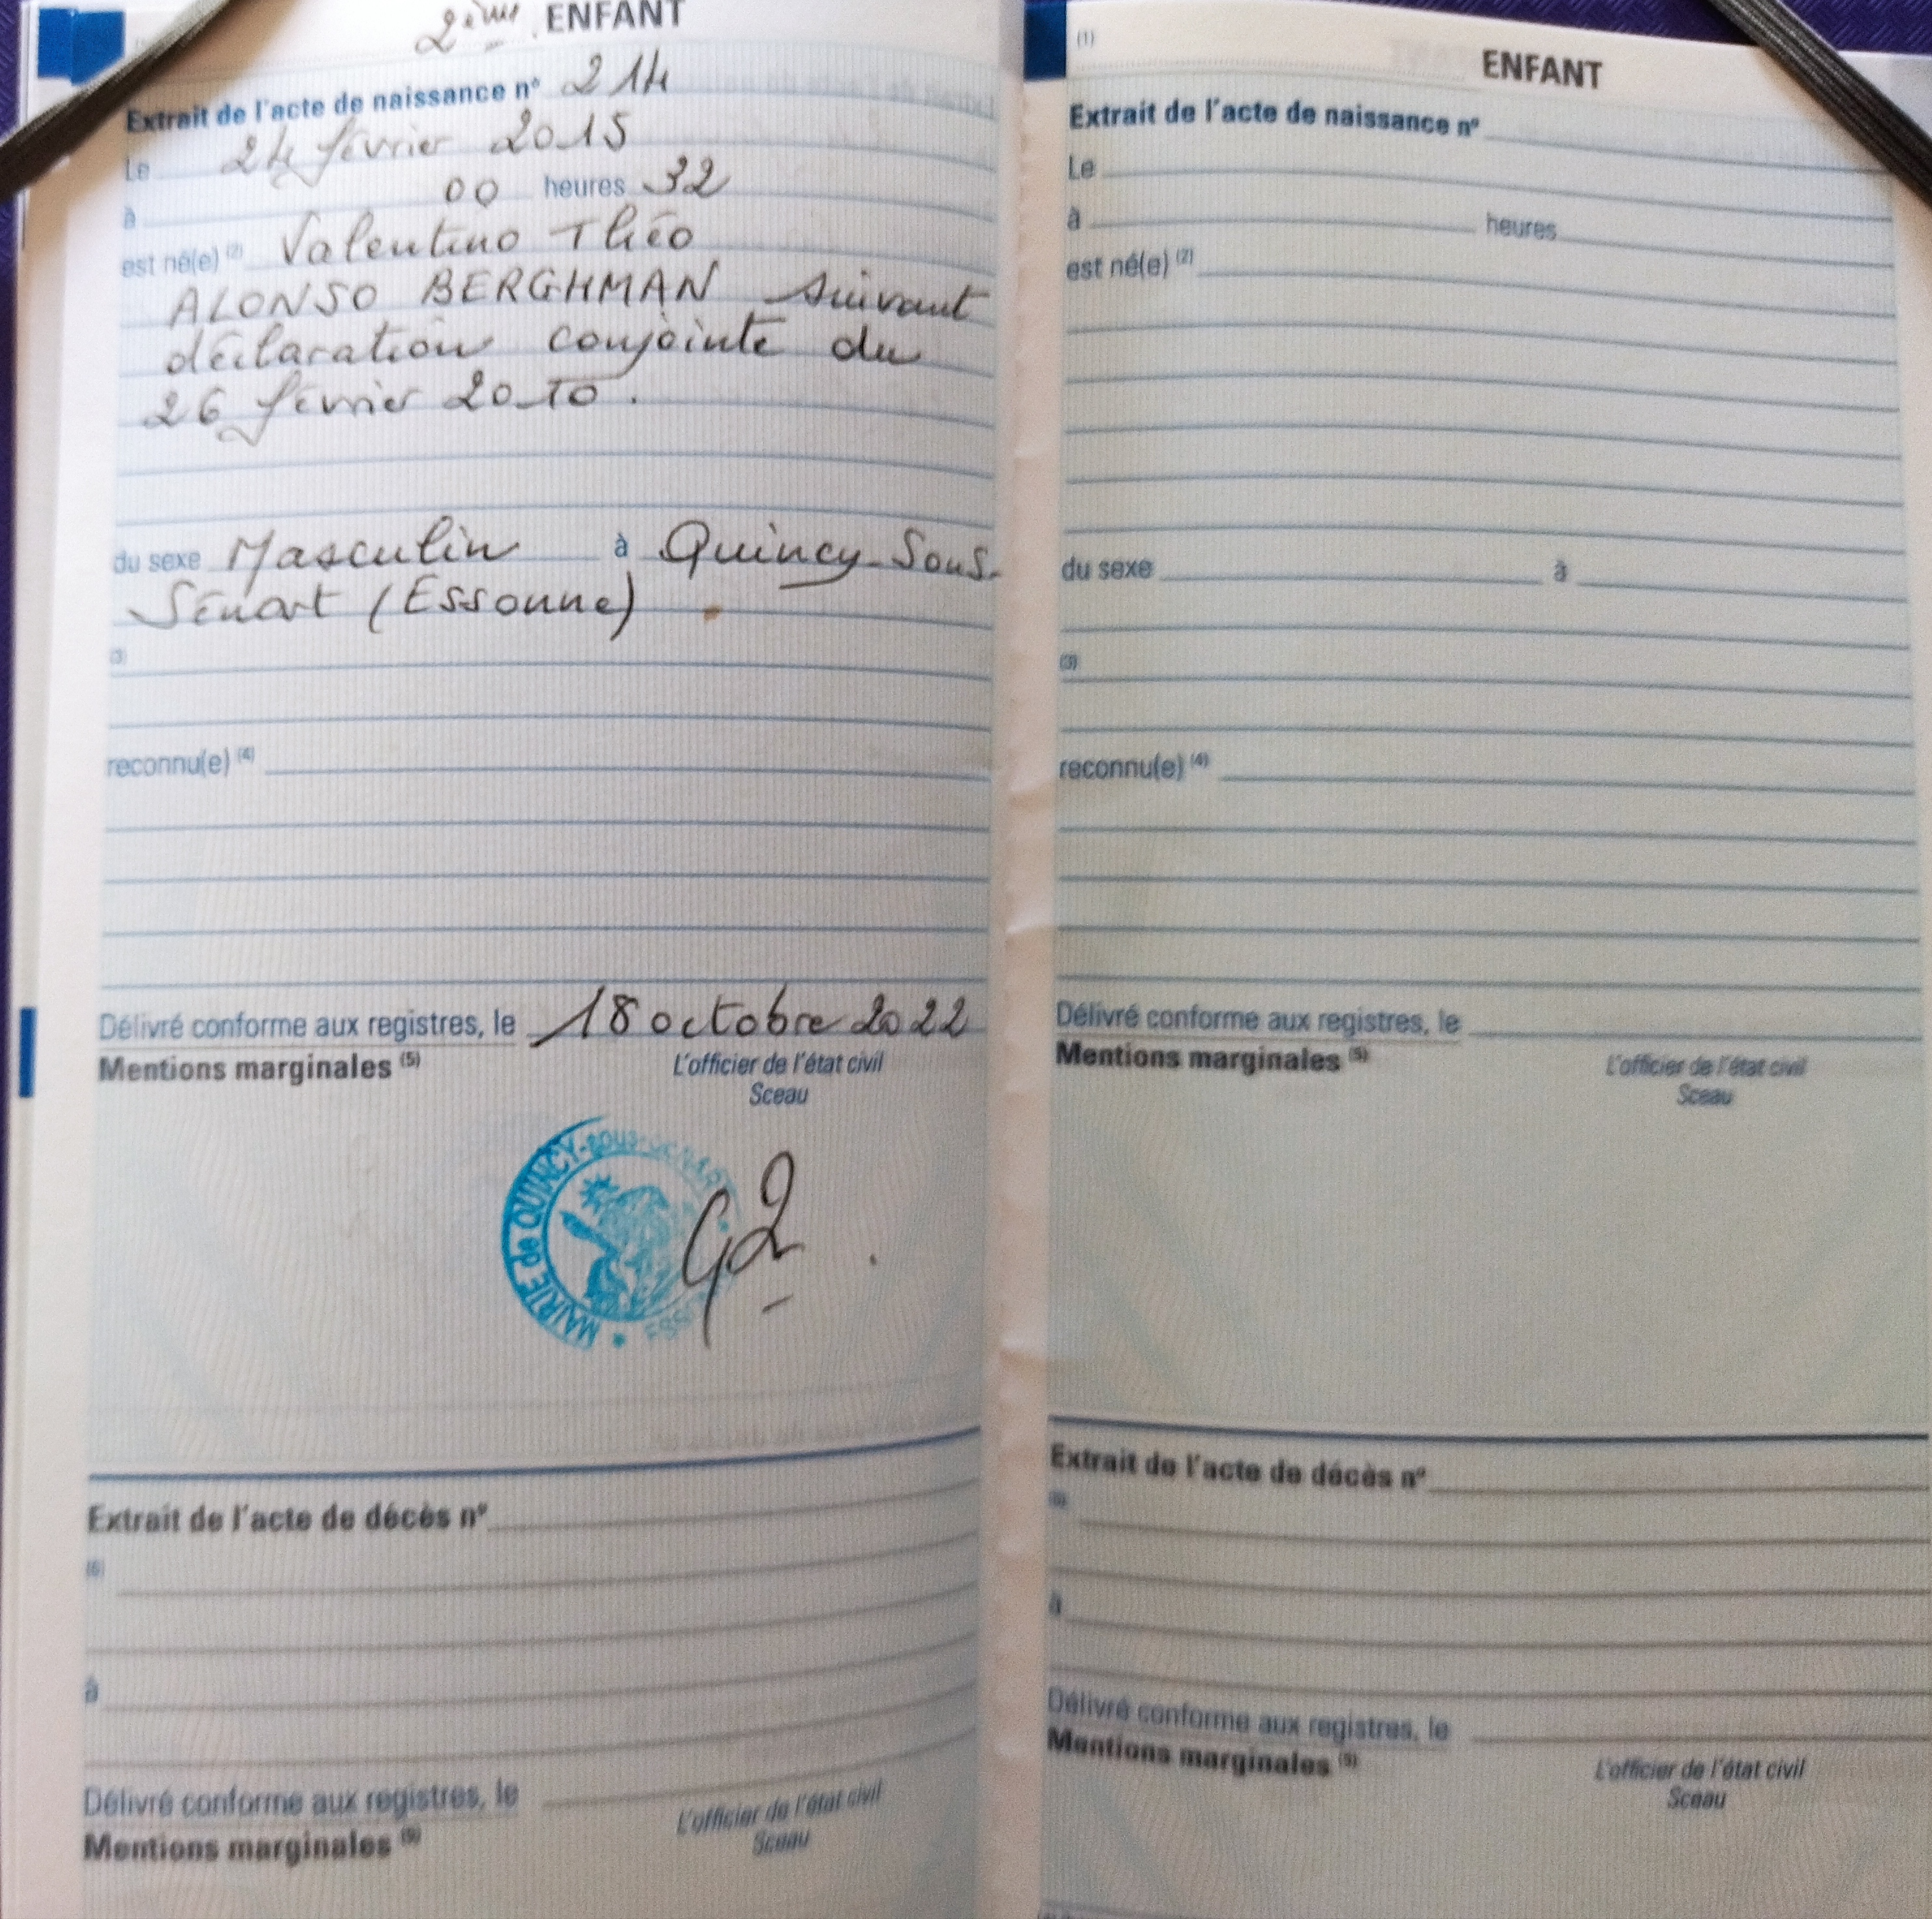 2ème ENFANT
Extrait de l'acte de naissance n° 214
Le 24 février 2015
à 00 heures 32
est né(e) (2) Valentino Théo
ALONSO BERGHMAN suivant
déclaration conjointe du
26 février 2010.
du sexe Masculin à Quincy-Sous-
Sénart (Essonne)
(3)
reconnu(e) (4)
Délivré conforme aux registres, le 18 octobre 2022
Mentions marginales (5)
L'officier de l'état civil
Sceau
MAIRIE de QUINCY-sous-SÉNART
Extrait de l'acte de décès n°
(6)
à
Délivré conforme aux registres, le
Mentions marginales (5)
L'officier de l'état civil
Sceau
(1)
ENFANT
Extrait de l'acte de naissance n°
Le
à heures
est né(e) (2)
du sexe à
(3)
reconnu(e) (4)
Délivré conforme aux registres, le
Mentions marginales (5)
L'officier de l'état civil
Sceau
Extrait de l'acte de décès n°
(6)
à
Délivré conforme aux registres, le
Mentions marginales (5)
L'officier de l'état civil
Sceau